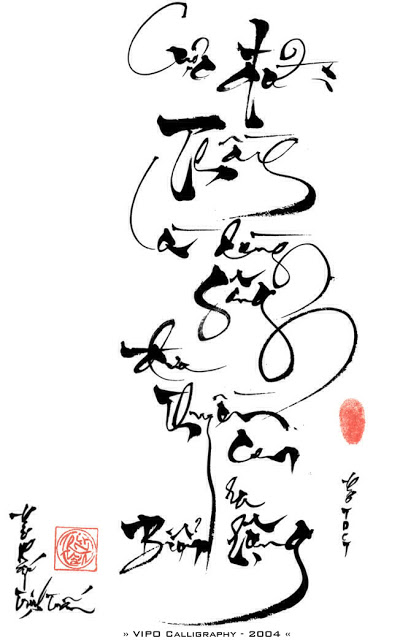 Cuộc đời
Thầy
Là dòng
Sông
đưa
Thuyền
Con
ra
Biển Rộng
» VIPO Calligraphy - 2004 «